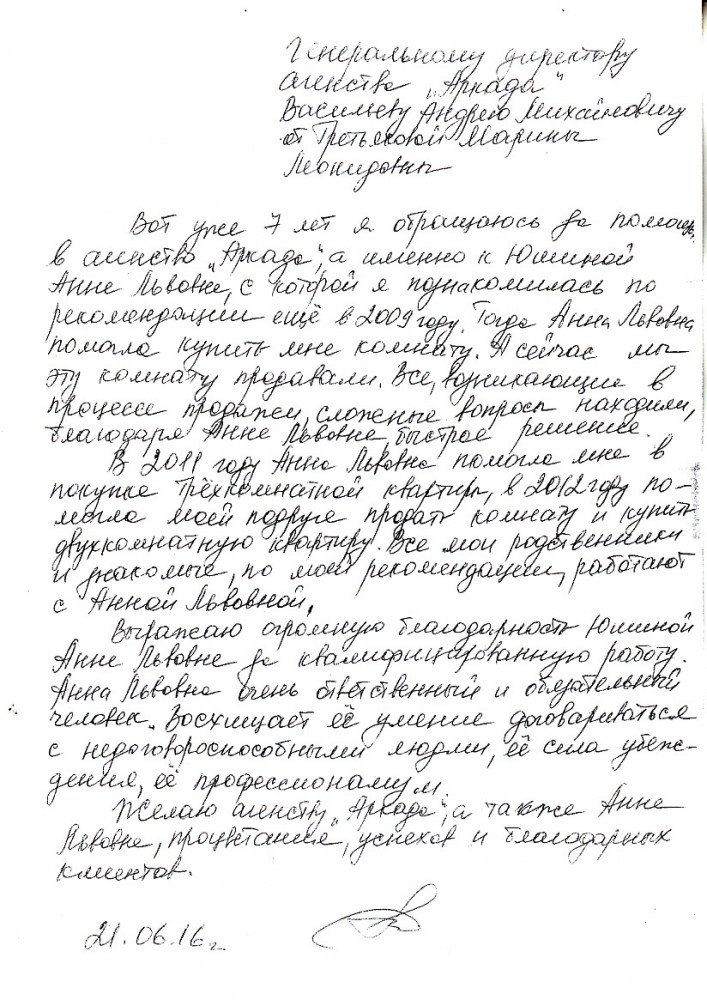 Генеральному директору
агенства „Аркада"
Васильеву Андрею Михайловичу
от Третьяковой Марины
Леонидовны
Вот уже 7 лет я обращаюсь за помощью
в агенство „Аркада", а именно к Юшиной
Анне Львовне, с которой я познакомилась по
рекомендации ещё в 2009 году. Тогда Анна Львовна
помогла купить мне комнату. А сейчас мы
эту комнату продавали. Все, возникающие в
процессе продажи, сложные вопросы находили,
благодаря Анне Львовне, быстрое решение.
В 2011 году Анна Львовна помогла мне в
покупке трёхкомнатной квартиры, в 2012 году по-
могла моей подруге продать комнату и купить
двухкомнатную квартиру. Все мои родственники
и знакомые, по моей рекомендации, работают
с Анной Львовной.
Выражаю огромную благодарность Юшиной
Анне Львовне за квалифицированную работу.
Анна Львовна очень ответственный и обязательный
человек. Восхищает её умение договариваться
с недоговороспособными людьми, её сила убеж-
дения, её профессионализм.
Желаю агенству „Аркада", а также Анне
Львовне, процветания, успехов и благодарных
клиентов.
21.06.16г.